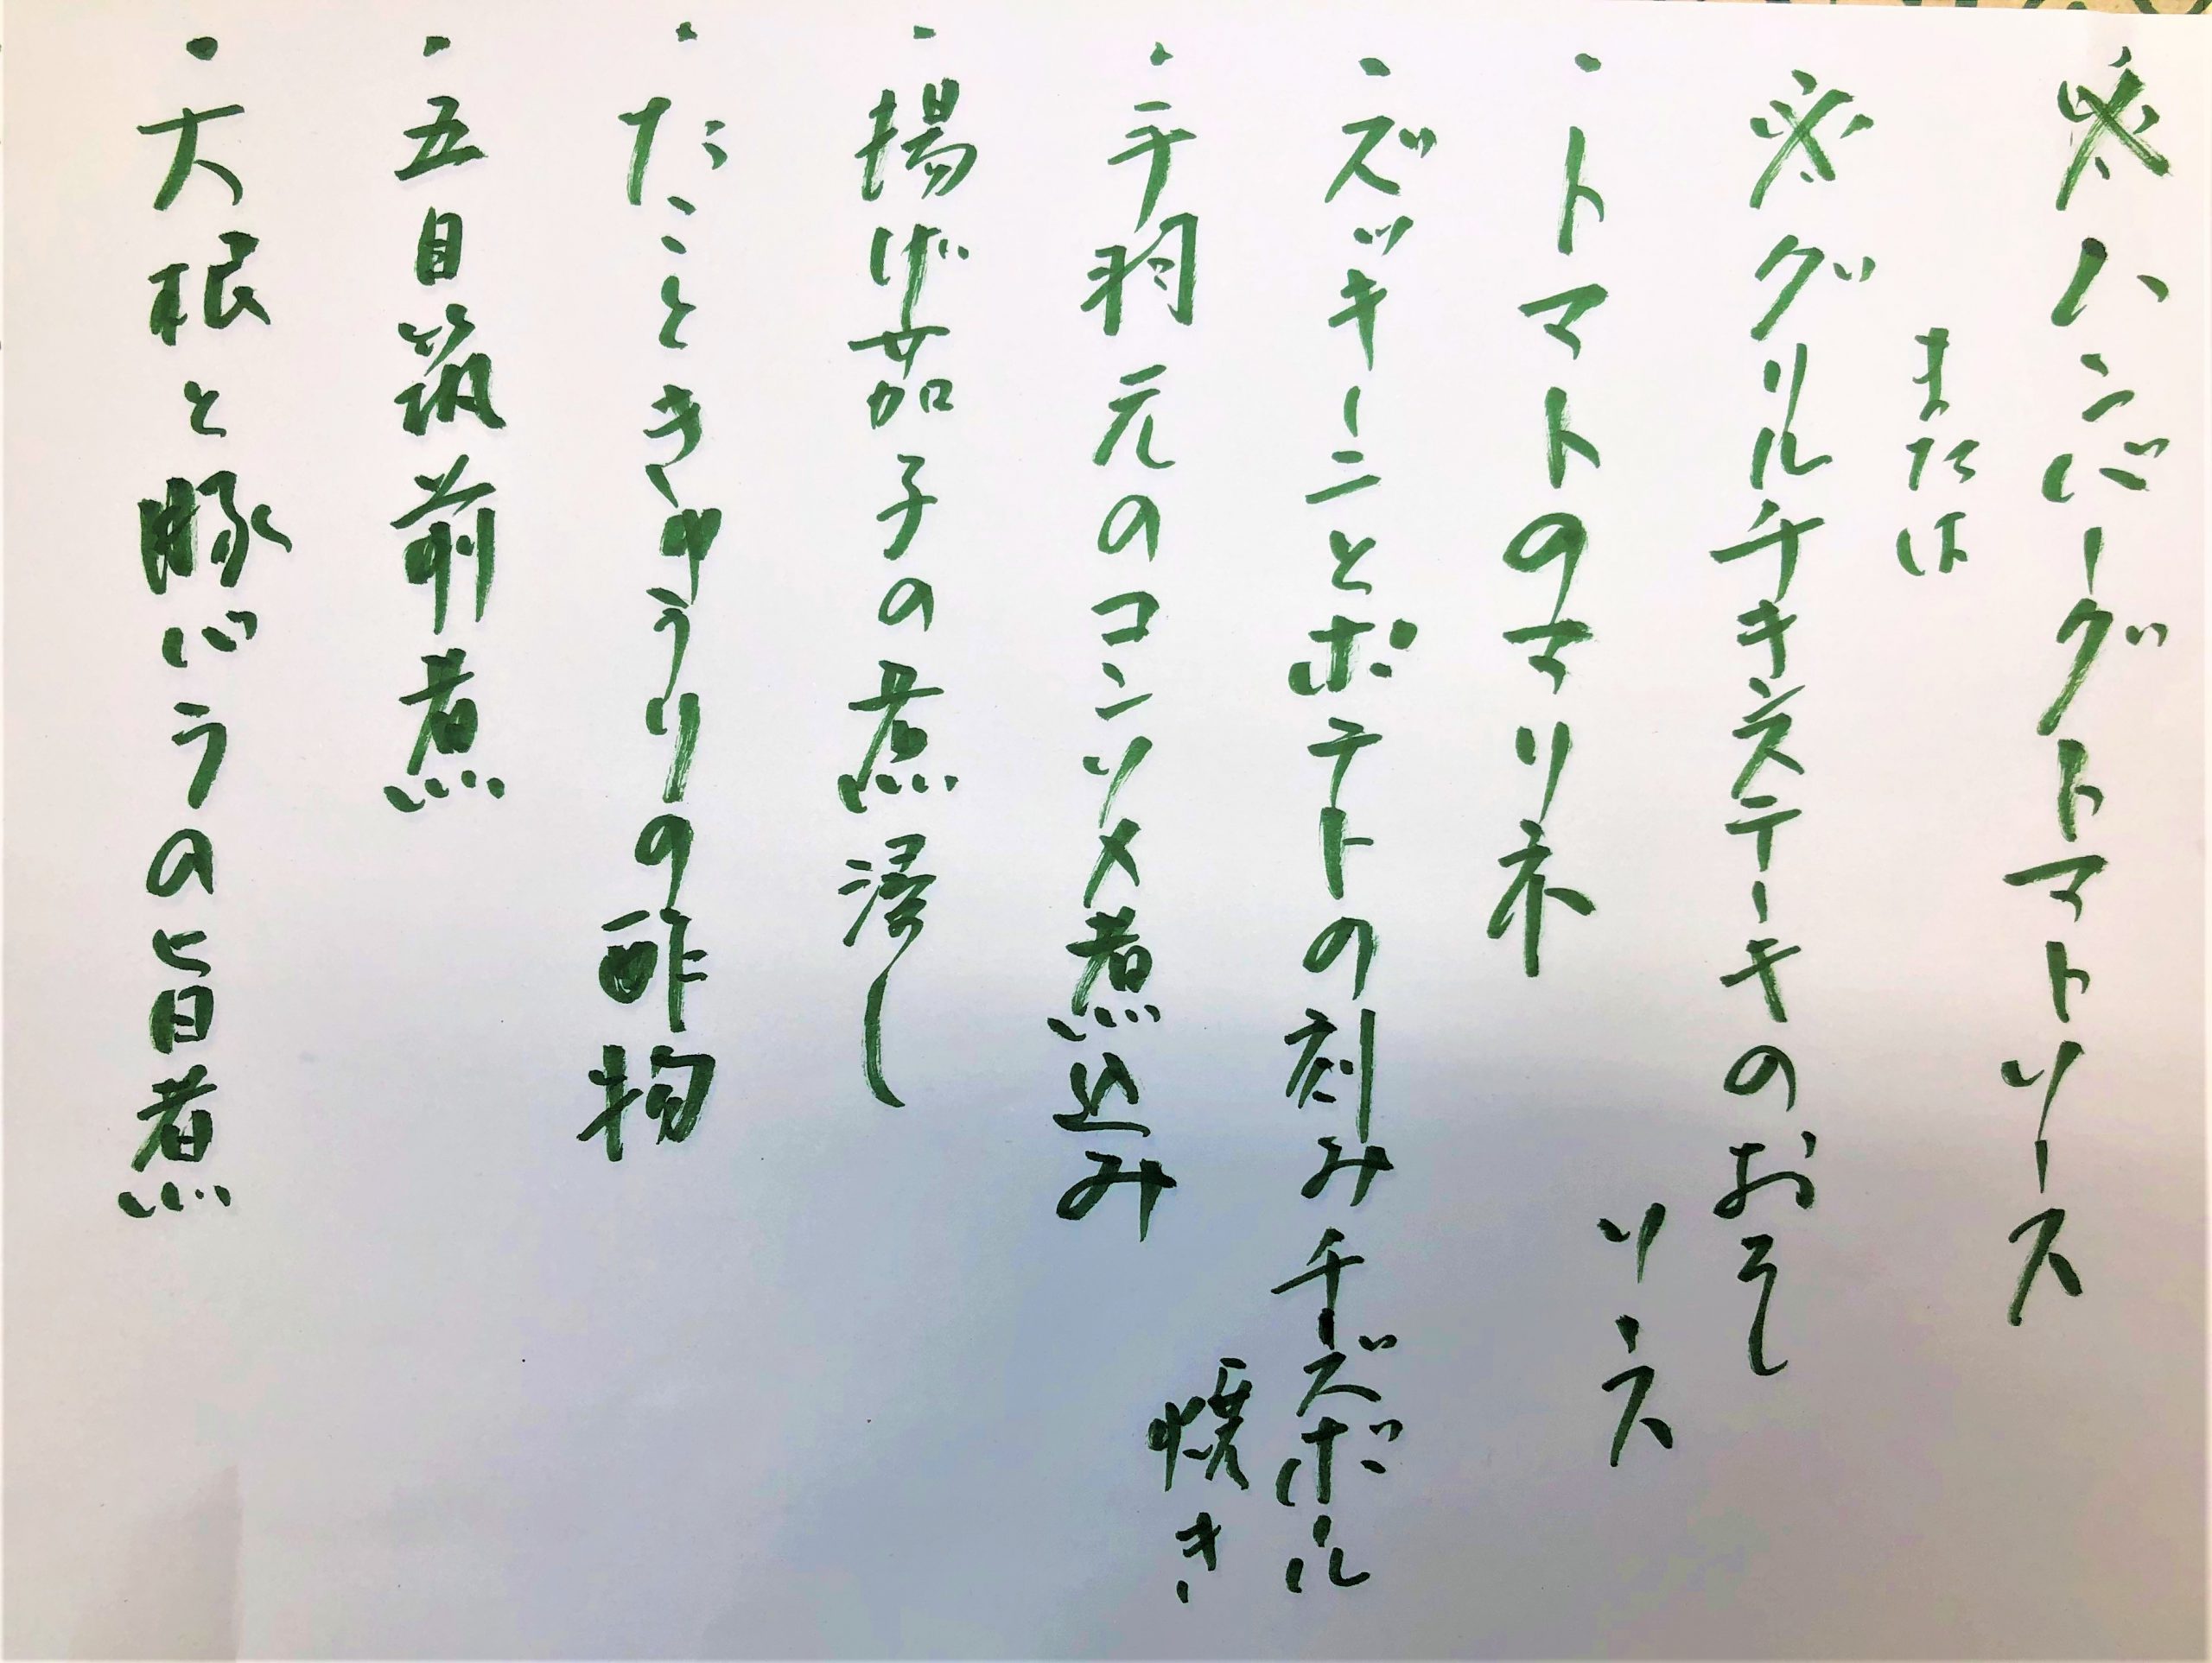 ※ハンバーグトマトソース
または
※グリルチキンステーキのおろし
ソース
・トマトのマリネ
・ズッキーニとポテトの刻みチーズボール
焼き
・手羽元のコンソメ煮込み
・揚げ茄子の煮浸し
・たこときゅうりの酢物
・五目筑前煮
・大根と豚バラの旨煮